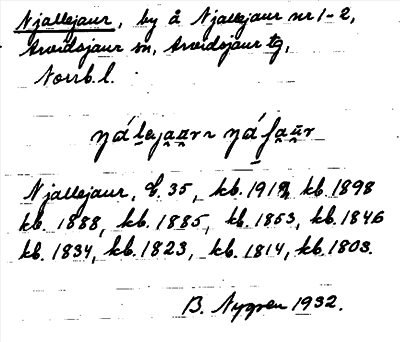 Njallejaur, by å Njallejaur nr 1-2,
Arvidsjaur sn, Arvidsjaur tg,
Norrb. l.
Njallejaur, E. 35, kb. 1912, kb. 1898
kb. 1888, kb. 1885, kb. 1853, kb. 1846
kb. 1834, kb. 1823, kb. 1814, kb. 1803.
B. Nygren 1932.